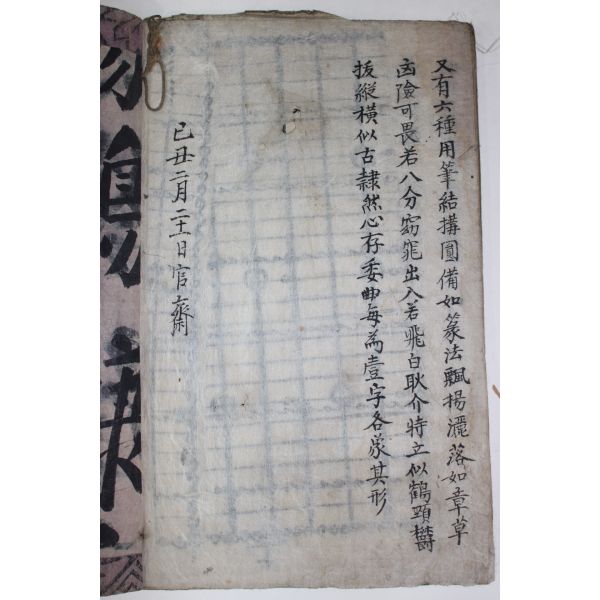 又有六種用筆結搆圓備如篆法飄揚灑落如章草
凶險可畏若八分窈窕出入若飛白耿介特立似鶴頭欝
拔縱橫似古隷然心存委曲每為壹字各象其形
已丑二月二十一日官齋